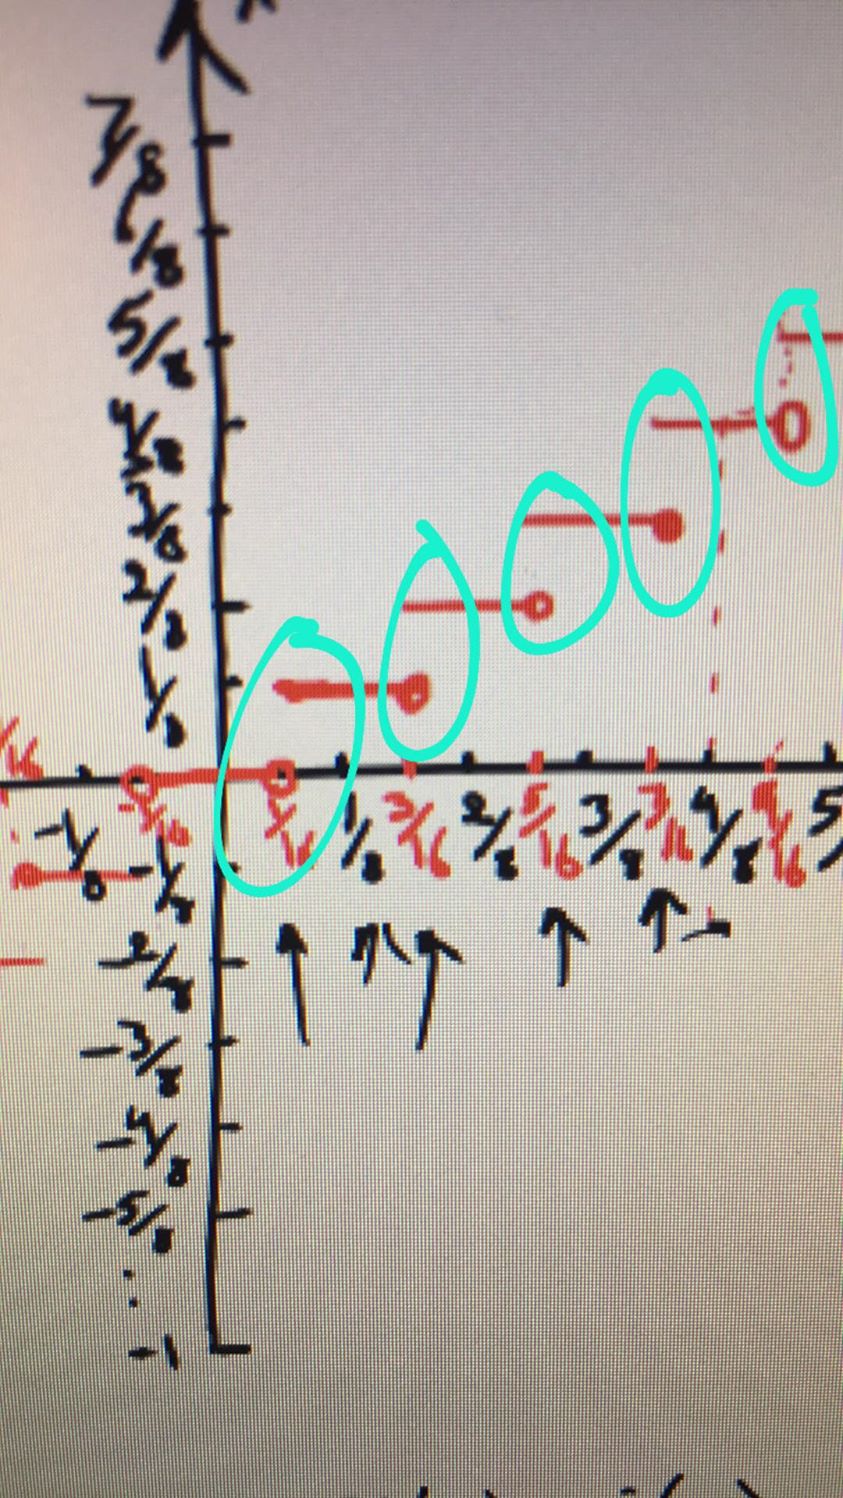 7/8
6/8
5/8
4/8
3/8
2/8
1/8
/16
-1/8 -1/16 1/16 1/8 3/16 2/8 5/16 3/8 7/16 4/8 9/16 5/
-1/8
-2/8
-3/8
-4/8
-5/8
-1